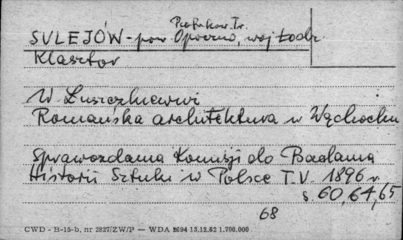 Piotrków Tr.
SULEJÓW - pow Opoczno, woj Łódz.
Klasztor
W Łuszczkiewicz
Romańska architektura w Wąchocku
Sprawozdania Komisji do Badania
Historii Sztuki w Polsce T. V. 1896 r
s. 60, 64, 65
68
CWD - B-15-b, nr 2827/ZW/P — WDA 2684 15.12.62 1.700.000